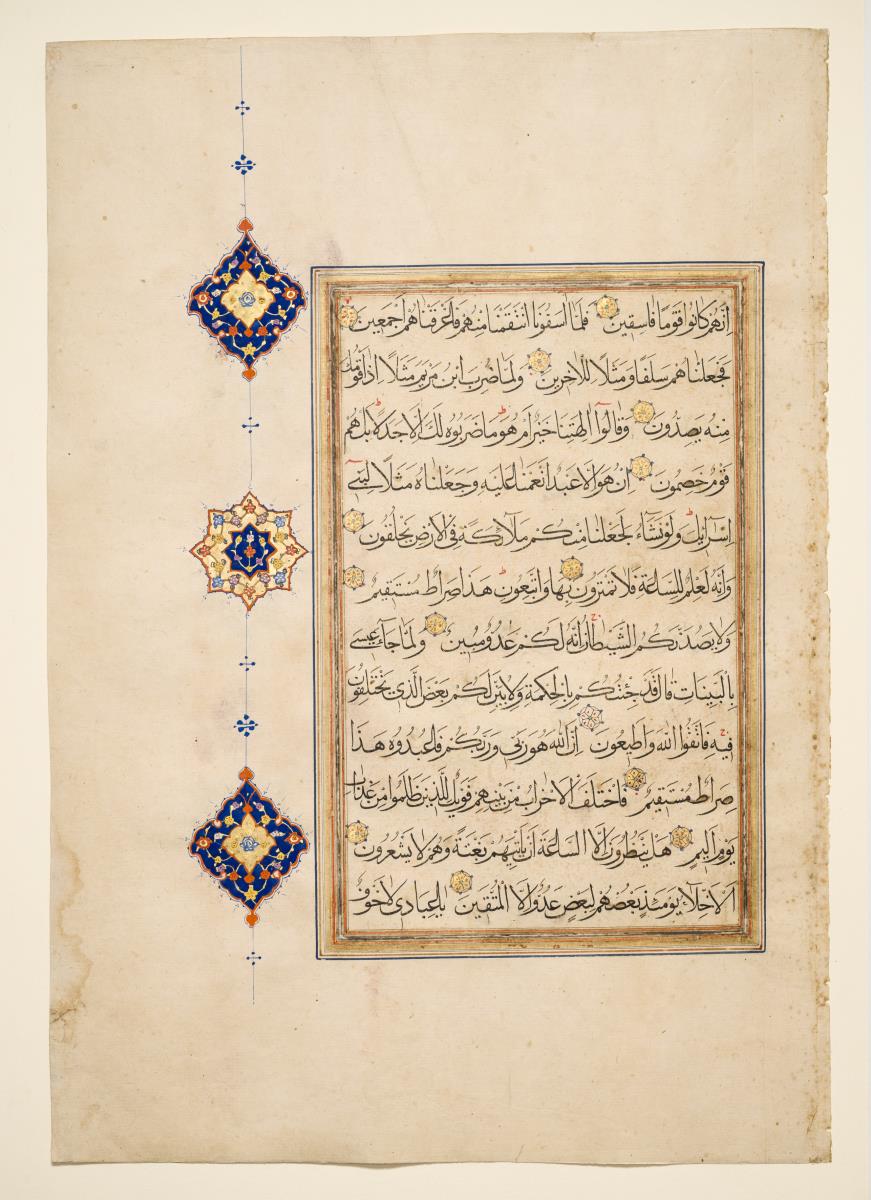 اِنَّهُمْ كَانُوا قَوْمًا فَاسِقِينَ فَلَمَّا اٰسَفُونَا انْتَقَمْنَا مِنْهُمْ فَاَغْرَقْنَاهُمْ اَجْمَعِينَ
فَجَعَلْنَاهُمْ سَلَفًا وَمَثَلًا لِلْاٰخِرِينَ وَلَمَّا ضُرِبَ ابْنُ مَرْيَمَ مَثَلًا اِذَا قَوْمُكَ
مِنْهُ يَصِدُّونَ وَقَالُوا اٰلِهَتُنَا خَيْرٌ اَمْ هُوَ مَا ضَرَبُوهُ لَكَ اِلَّا جَدَلًا بَلْ هُمْ
قَوْمٌ خَصِمُونَ اِنْ هُوَ اِلَّا عَبْدٌ اَنْعَمْنَا عَلَيْهِ وَجَعَلْنَاهُ مَثَلًا لِبَنِي
اِسْرَائِيلَ وَلَوْ نَشَاءُ لَجَعَلْنَا مِنْكُمْ مَلَائِكَةً فِي الْاَرْضِ يَخْلُفُونَ
وَاِنَّهُ لَعِلْمٌ لِلسَّاعَةِ فَلَا تَمْتَرُنَّ بِهَا وَاتَّبِعُونِ هٰذَا صِرَاطٌ مُسْتَقِيمٌ
وَلَا يَصُدَّنَّكُمُ الشَّيْطَانُ اِنَّهُ لَكُمْ عَدُوٌّ مُبِينٌ وَلَمَّا جَاءَ عِيسٰى
بِالْبَيِّنَاتِ قَالَ قَدْ جِئْتُكُمْ بِالْحِكْمَةِ وَلِاُبَيِّنَ لَكُمْ بَعْضَ الَّذِي تَخْتَلِفُونَ
فِيهِ فَاتَّقُوا اللّٰهَ وَاَطِيعُونِ اِنَّ اللّٰهَ هُوَ رَبِّي وَرَبُّكُمْ فَاعْبُدُوهُ هٰذَا
صِرَاطٌ مُسْتَقِيمٌ فَاخْتَلَفَ الْاَحْزَابُ مِنْ بَيْنِهِمْ فَوَيْلٌ لِلَّذِينَ ظَلَمُوا مِنْ عَذَابِ
يَوْمٍ اَلِيمٍ هَلْ يَنْظُرُونَ اِلَّا السَّاعَةَ اَنْ تَأْتِيَهُمْ بَغْتَةً وَهُمْ لَا يَشْعُرُونَ
اَلْاَخِلَّاءُ يَوْمَئِذٍ بَعْضُهُمْ لِبَعْضٍ عَدُوٌّ اِلَّا الْمُتَّقِينَ يَا عِبَادِي لَا خَوْفٌ